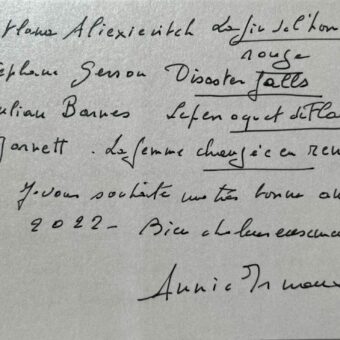 tlana Aliexievitch La fin de l'hom
rouge
éphane Gerson Disaster falls
ulian Barnes Le perroquet de Fla
Garnett. La femme changée en ren
Je vous souhaite une très bonne an
2022 - Bien chaleureusemen
Annie Ernau